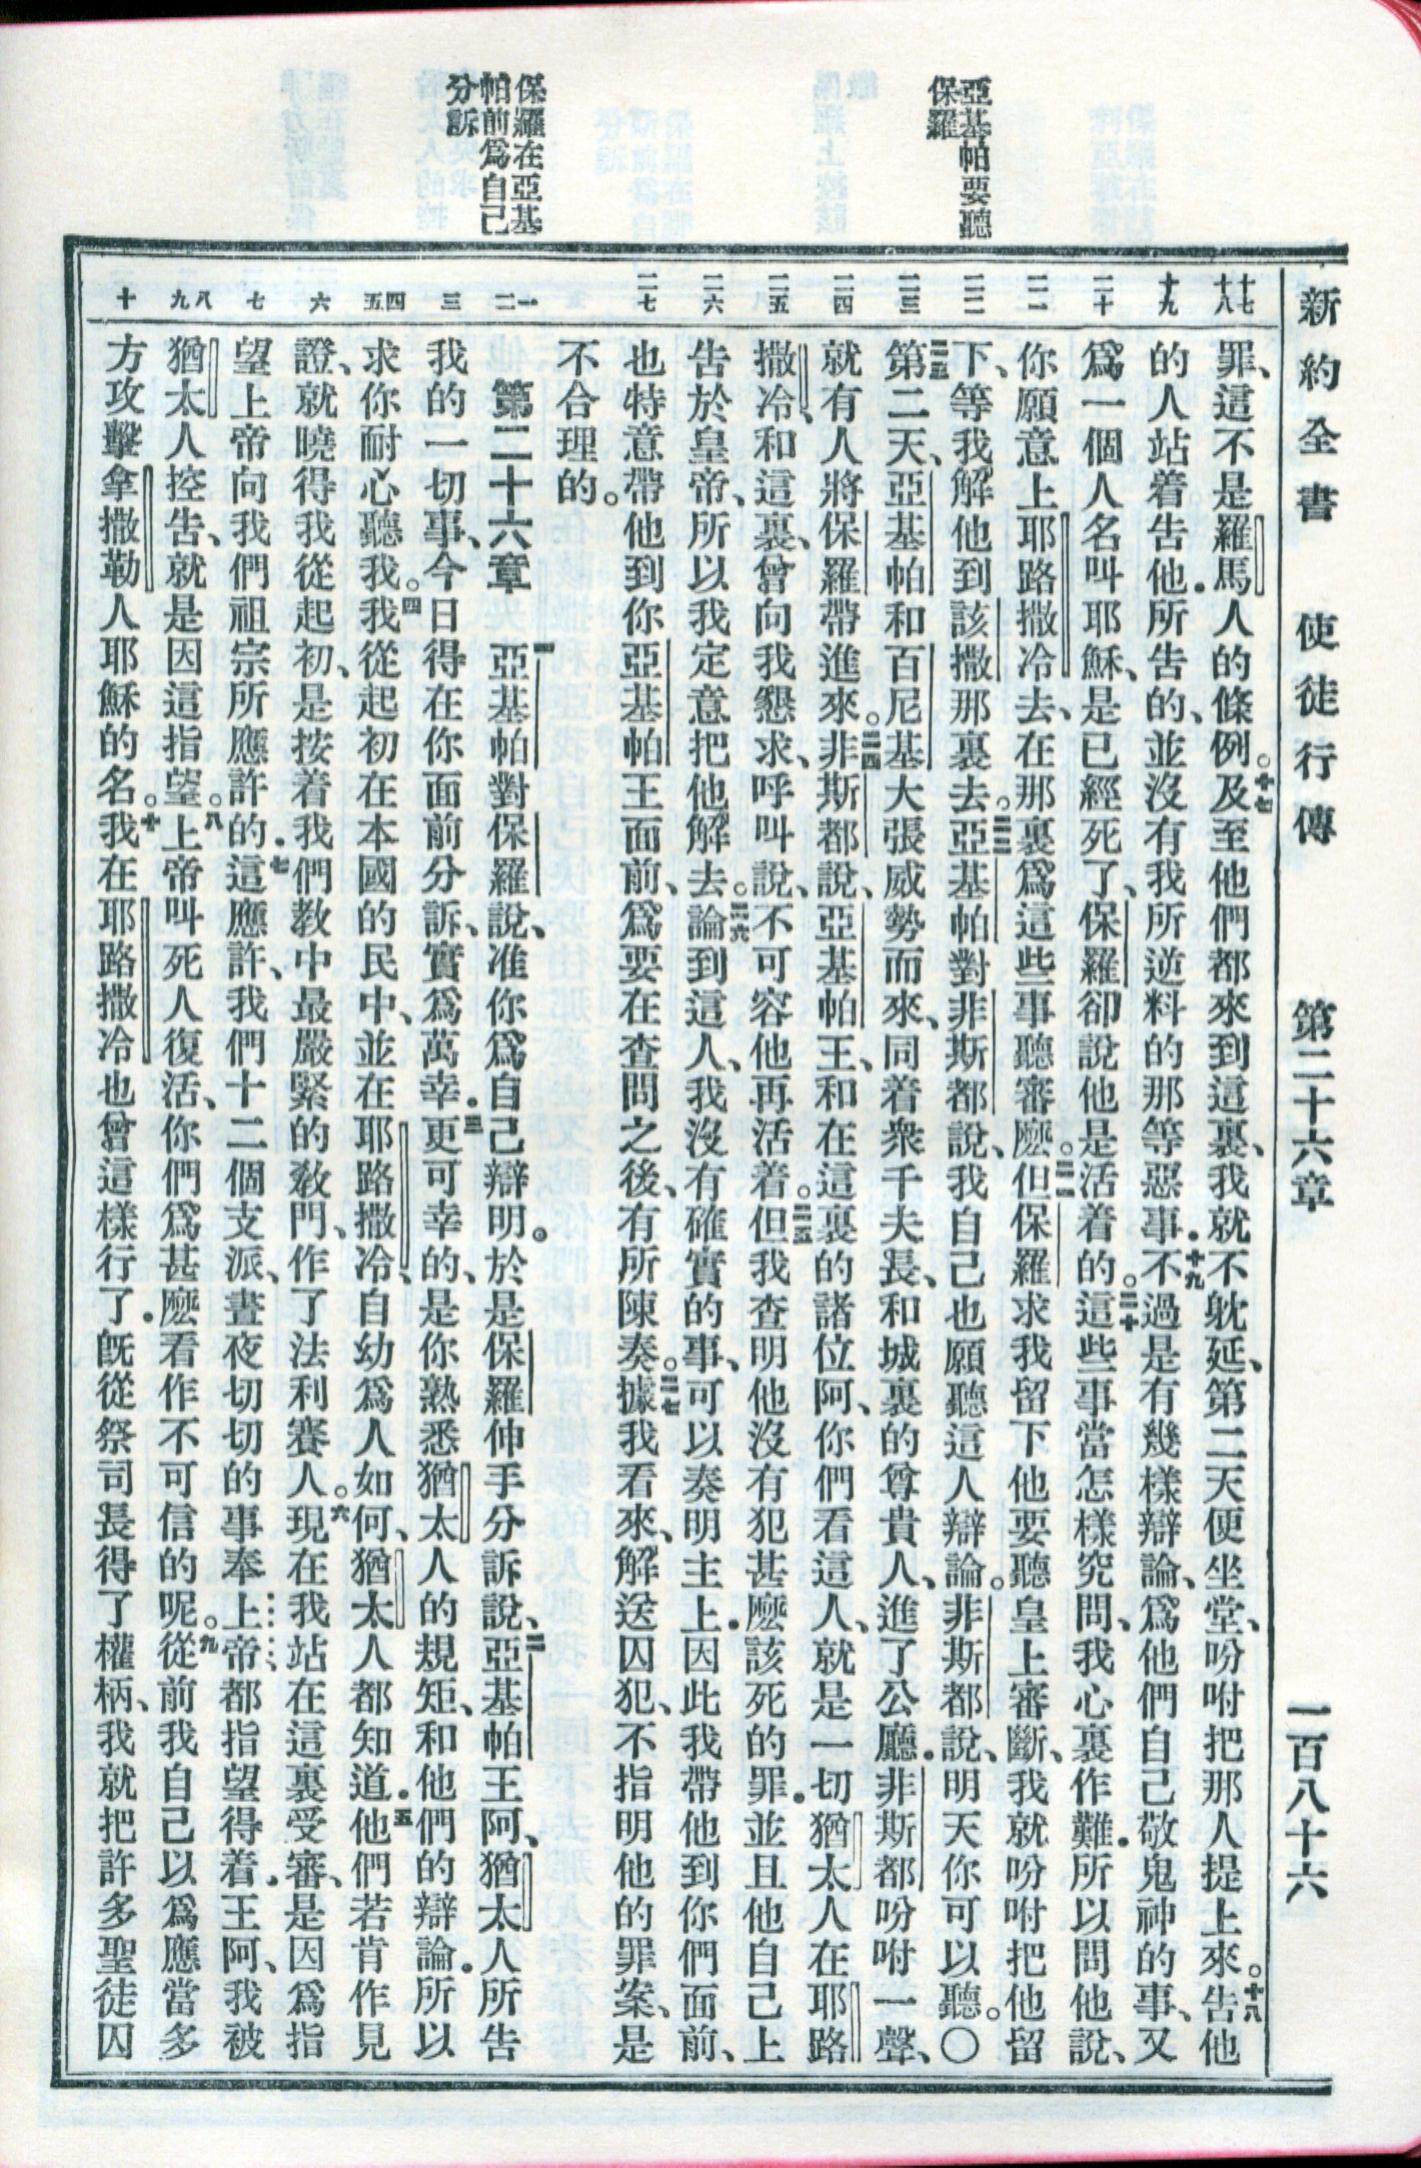 新約全書 使徒行傳 第二十六章 一百八十六
亞基帕要聽
保羅
保羅在亞基
帕前爲自己
分訴
十七 十八 十九 二十 二一 二二 二三 二四 二五 二六 二七 一 二 三 四 五 六 七 八 九 十
罪、這不是羅馬人的條例。十七及至他們都來到這裏、我就不躭延、第二天便坐堂、吩咐把那人提上來。十八告他
的人站着告他．所告的、並沒有我所逆料的那等惡事．十九不過是有幾樣辯論、爲他們自己敬鬼神的事、又
爲一個人名叫耶穌、是已經死了、保羅卻說他是活着的。二十這些事當怎樣究問、我心裏作難．所以問他說、
你願意上耶路撒冷去、在那裏爲這些事聽審麽。二一但保羅求我留下他要聽皇上審斷、我就吩咐把他留
下、等我解他到該撒那裏去。二二亞基帕對非斯都說、我自己也願聽這人辯論。非斯都說、明天你可以聽。○
二三第二天、亞基帕和百尼基大張威勢而來、同着衆千夫長、和城裏的尊貴人、進了公廳．非斯都吩咐一聲、
就有人將保羅帶進來。二四非斯都說、亞基帕王、和在這裏的諸位阿、你們看這人、就是一切猶太人在耶路
撒冷、和這裏、曾向我懇求、呼叫說、不可容他再活着。二五但我查明他沒有犯甚麽該死的罪．並且他自己上
告於皇帝、所以我定意把他解去。二六論到這人、我沒有確實的事、可以奏明主上．因此我帶他到你們面前、
也特意帶他到你亞基帕王面前、爲要在查問之後、有所陳奏。二七據我看來、解送囚犯、不指明他的罪案、是
不合理的。
第二十六章 一亞基帕對保羅說、准你爲自己辯明。於是保羅伸手分訴說、二亞基帕王阿、猶太人所告
我的一切事、今日得在你面前分訴、實爲萬幸．三更可幸的、是你熟悉猶太人的規矩、和他們的辯論．所以
求你耐心聽我。四我從起初在本國的民中、並在耶路撒冷、自幼爲人如何、猶太人都知道．五他們若肯作見
證、就曉得我從起初、是按着我們教中最嚴緊的教門、作了法利賽人。六現在我站在這裏受審、是因爲指
望上帝向我們祖宗所應許的．七這應許、我們十二個支派、晝夜切切的事奉上帝、都指望得着．王阿、我被
猶太人控告、就是因這指望。八上帝叫死人復活、你們爲甚麽看作不可信的呢。九從前我自己以爲應當多
方攻擊拿撒勒人耶穌的名。十我在耶路撒冷也曾這樣行了．旣從祭司長得了權柄、我就把許多聖徒囚